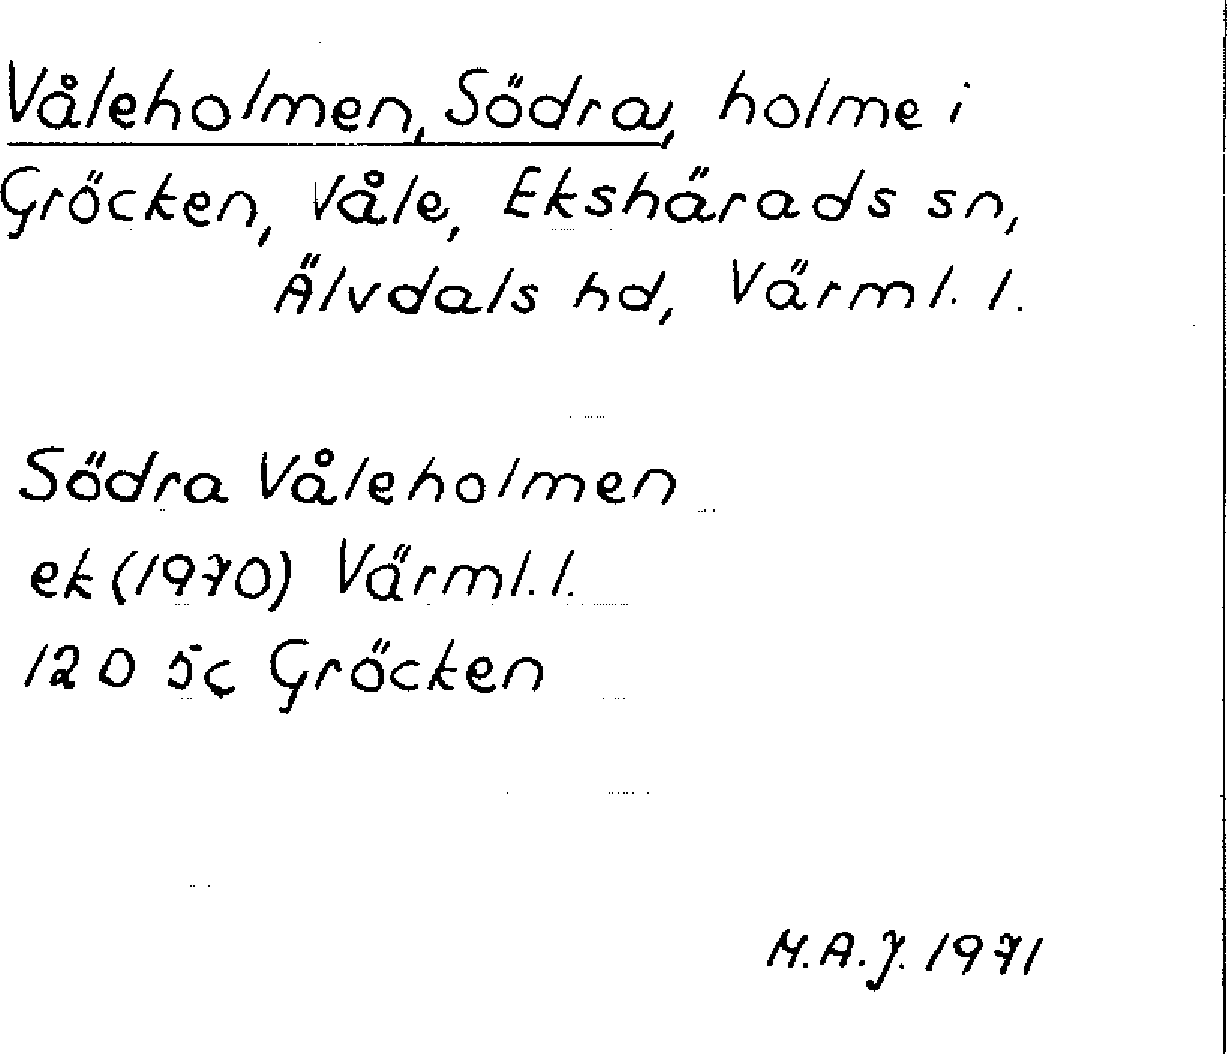 Våleholmen, Södra, holme i
Gröcken, Våle, Ekshärads sn,
Älvdals hd, Värml. l.
Södra Våleholmen
ek (1970) Värml. l.
12 D 5c Gröcken
M.A.J. 1971